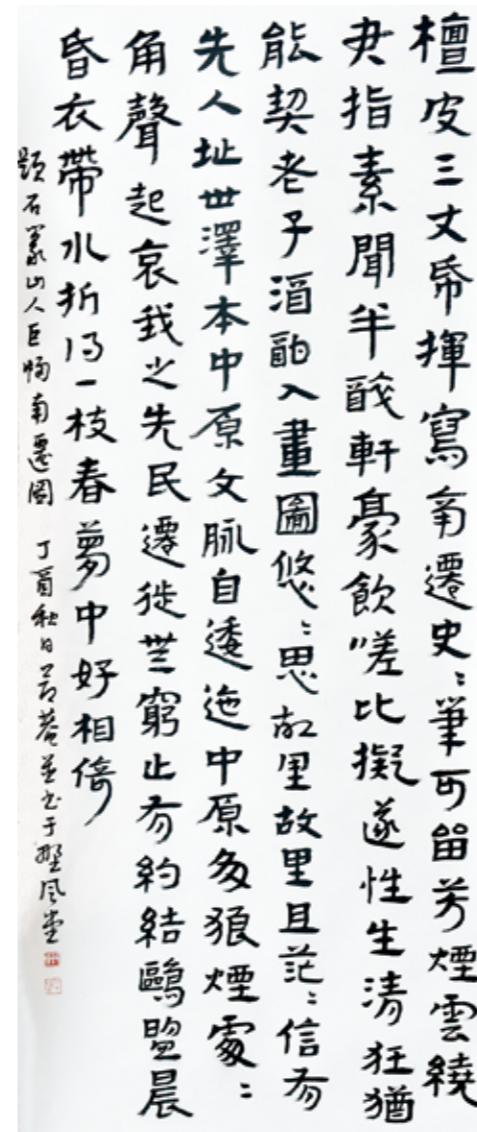 檀皮三丈帋揮寫南遷史〻筆可留芳煙雲繞
君指素聞半醆軒豪飲嗟比擬遂性生清狂猶
能契老子酒酣入畫圖悠〻思故里故里且茫〻信有
先人址世澤本中原文脈自逶迤中原多狼煙處〻
角聲起哀我之先民遷徙無窮止有約結鷗盟晨
昏衣帶水折得一枝春夢中好相倚
題石篆山人巨幅南遷圖 丁酉秋日菴並書于野風堂